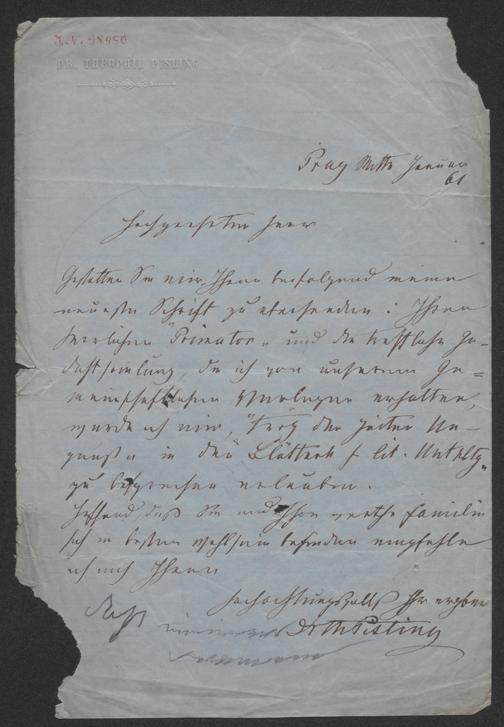 I.N. 48950
DR. THEOPHIL PISLING
Prag Mitte Januar
61
Hochgeehrter Herr
Gestatten Sie mir, Ihnen beifolgend meine
neueste Schrift zu übersenden. Ihren
herrlichen "Primator" und die treffliche Ge-
dichtsammlung, die ich von unserem Ge-
meinschaftlichen Verleger erhalten,
werde ich mir, "trotz der Zeiten Un-
gunst" in den Blättern f. lit. Unthltg.
zu besprechen erlauben.
Hoffend, daß Sie und Ihre werthe Familie
sich im besten Wohlsein befinden empfehle
ich mich Ihnen
Hochachtungsvoll Ihr ergeben
Dr Th Pisling